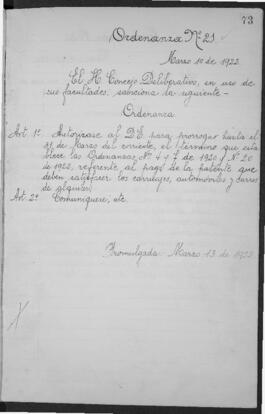 73
Ordenanza Nº 21
Marzo 1º de 1922.
El H. Concejo Deliberativo, en uso de
sus facultades, sanciona la siguiente -
Ordenanza
Art. 1º Autorízase al D.E. para prorrogar hasta el
31 de Marzo del corriente, el término que esta
blece las Ordenanzas Nº 4 y 7 de 1920 y Nº 20
de 1922, referente al pago de la patente que
deben satisfacer los carruajes, automóviles y carros
de alquiler.
Art. 2º Comuníquese, etc.
Promulgada: Marzo 13 de 1922.